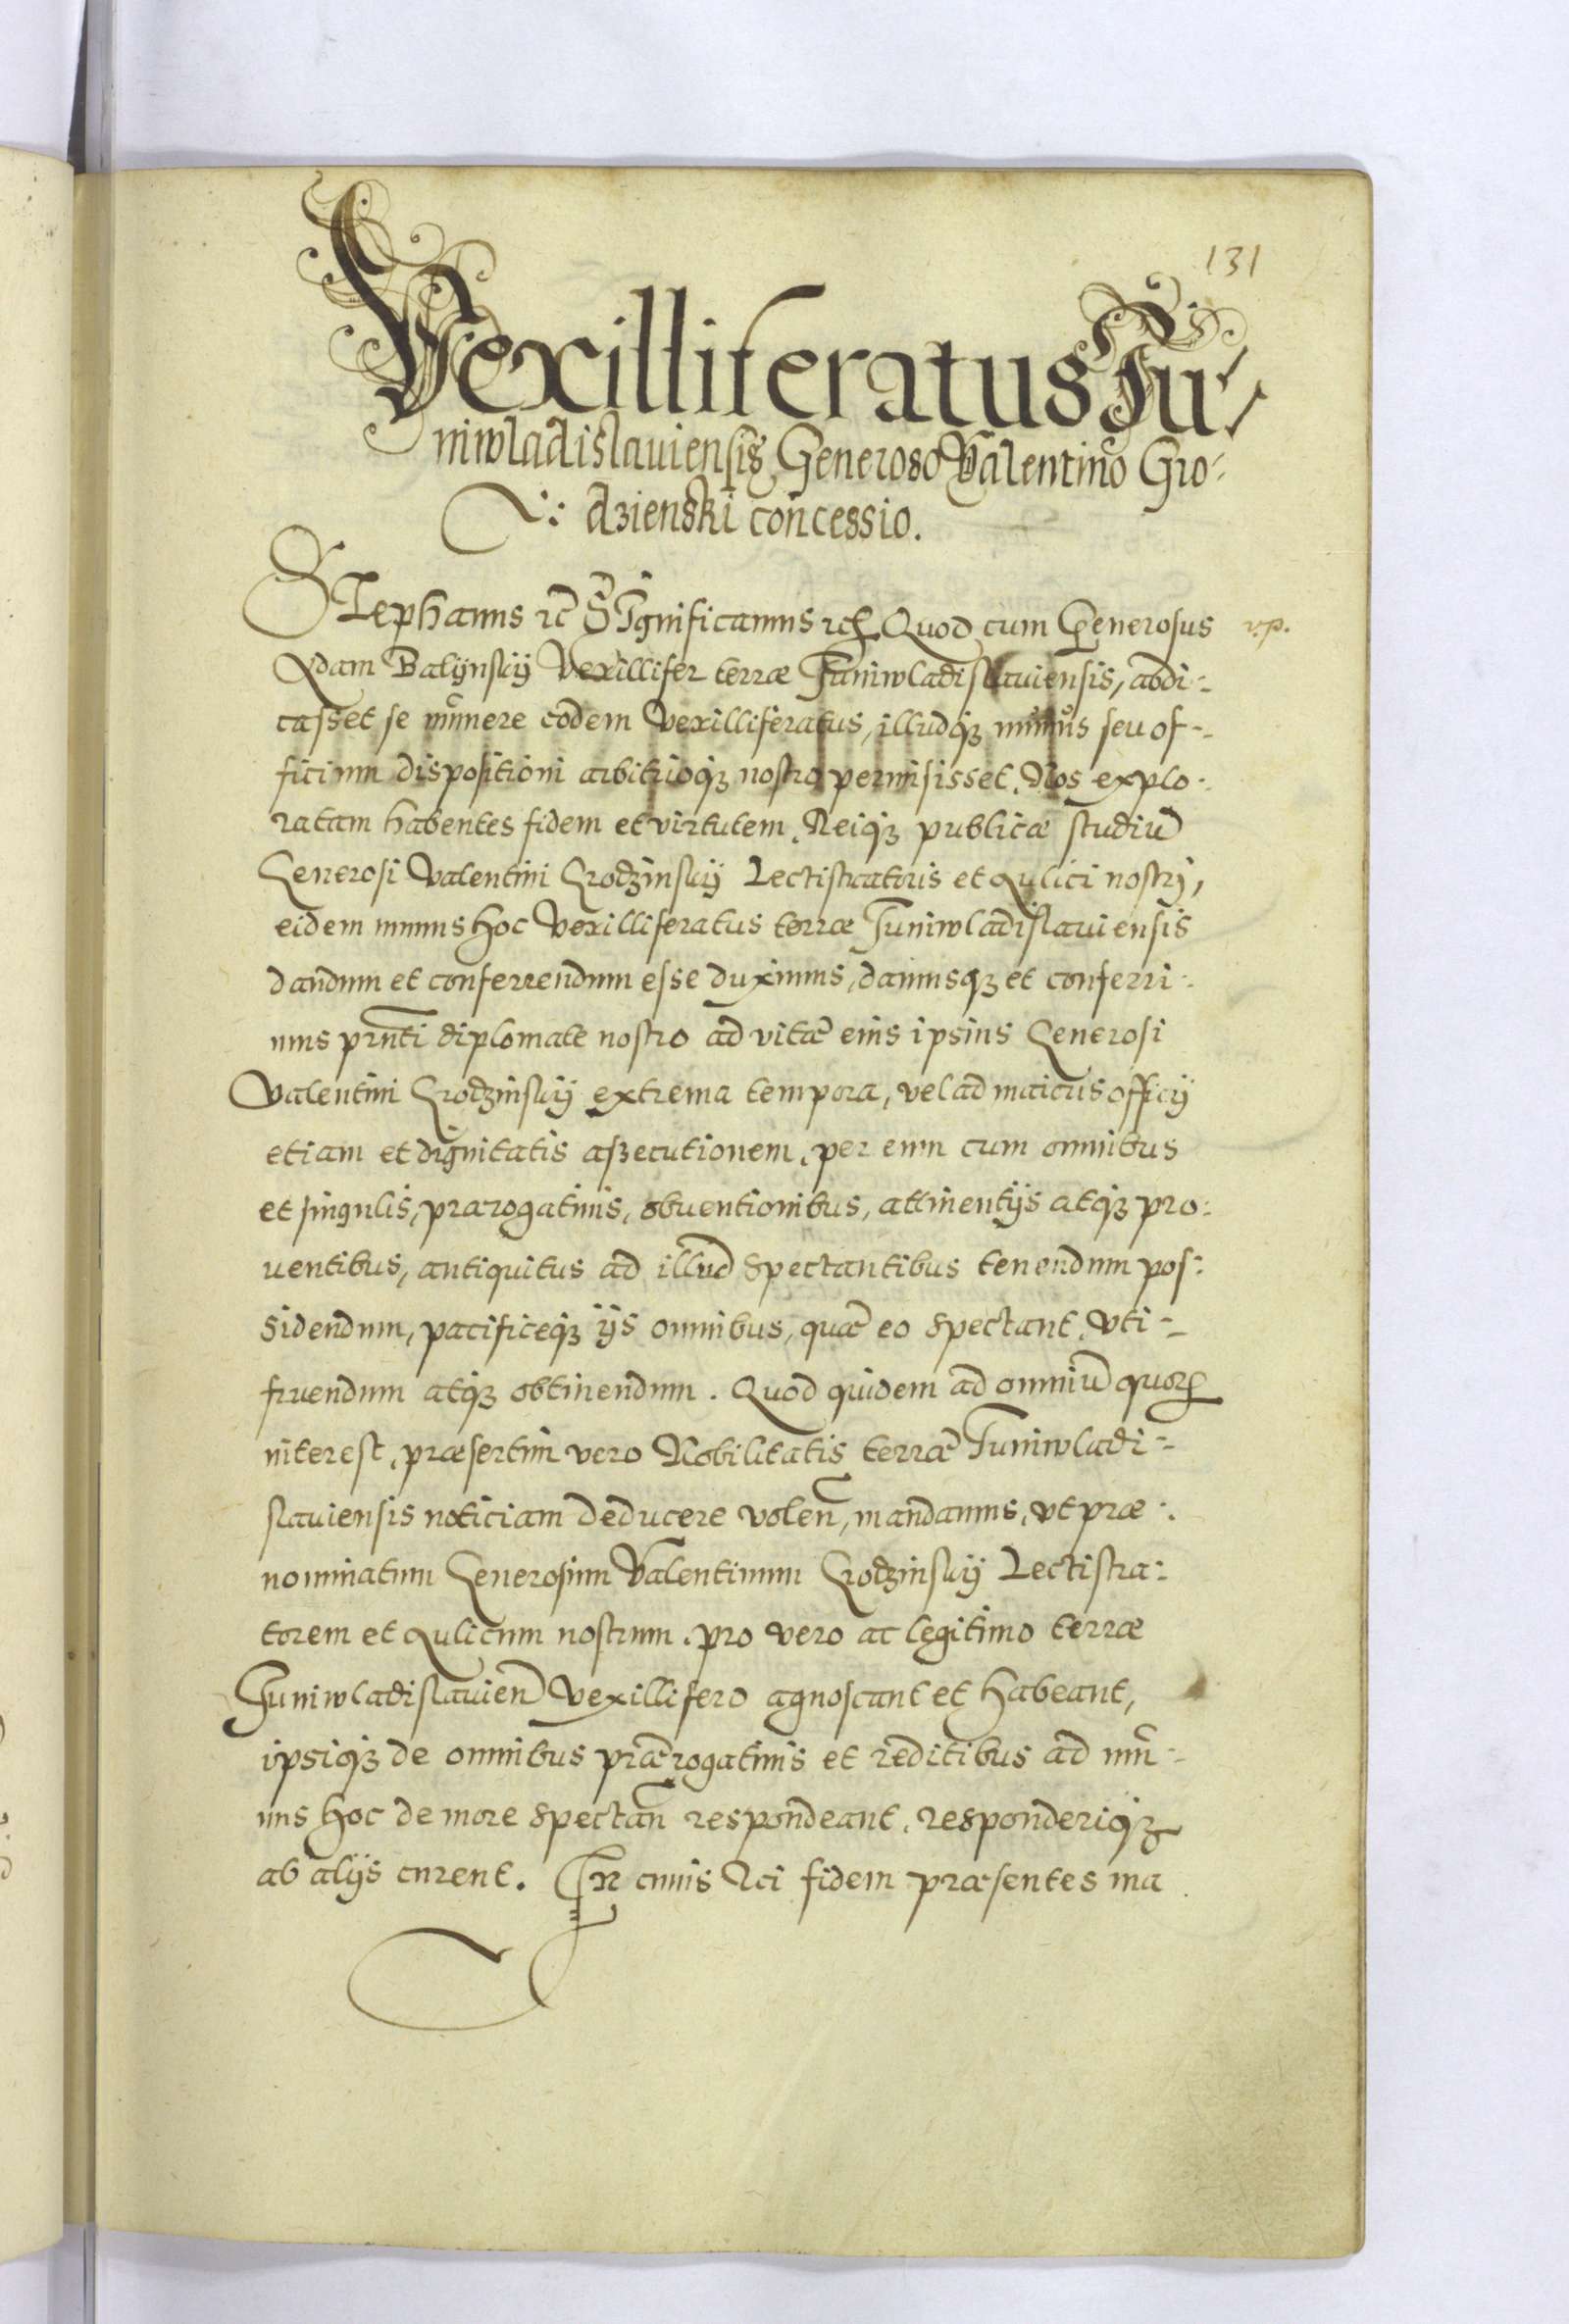 131
Vexilliferatus Iu-
niwladislauiensis Generoso Valentino Gro-
dzienski concessio.
Stephanus etc Significamus etc Quod cum Generosus
v.p.
Adam Balijnskij Vexillifer terræ Iuniwladislauiensis, abdi-
casset se munere eodem Vexilliferatus, illudq3 munus seu of-
ficium dispositioni arbitrioq3 nostro permisisset. Nos explo-
ratam habentes fidem et virtutem, Reiq3 publicæ studiū
Generosi Valentini Grodzinskij Lectistratoris et Aulici nostri,
eidem munus hoc Vexilliferatus terræ Iuniwladislauiensis
dandum et conferrendum esse duximus, damusq3 et conferri-
mus pꝛnti diplomate nostro ad vitæ eius ipsius Generosi
Valentini Grodzinskij extrema tempora, vel ad maioris officij
etiam et dignitatis assecutionem, per eum cum omnibus
et singulis, prærogatiuis, obuentionibus, attinentijs atq3 pro-
uentibus, antiquitus ad illud spectantibus tenendum pos-
sidendum, pacificeq3 ijs omnibus, quæ eo spectant, vti-
fruendum atq3 obtinendum. Quod quidem ad omniū quoꝝ
interest, præsertim vero Nobilitatis terræ Iuniwladi-
slauiensis noticiam deducere volen̄, mandamus, vt præ-
nominatum Generosum Valentinum Grodzinskij Lectistra-
torem et Aulicum nostrum, pro vero ac legitimo terræ
Iuniwladislauien̄ Vexillifero agnoscant et habeant,
ipsiq3 de omnibus prærogatiuis et reditibus ad mu-
nus hoc de more spectan̄ respondeant, responderiq3
ab alijs curent. In cuius Rei fidem præsentes ma